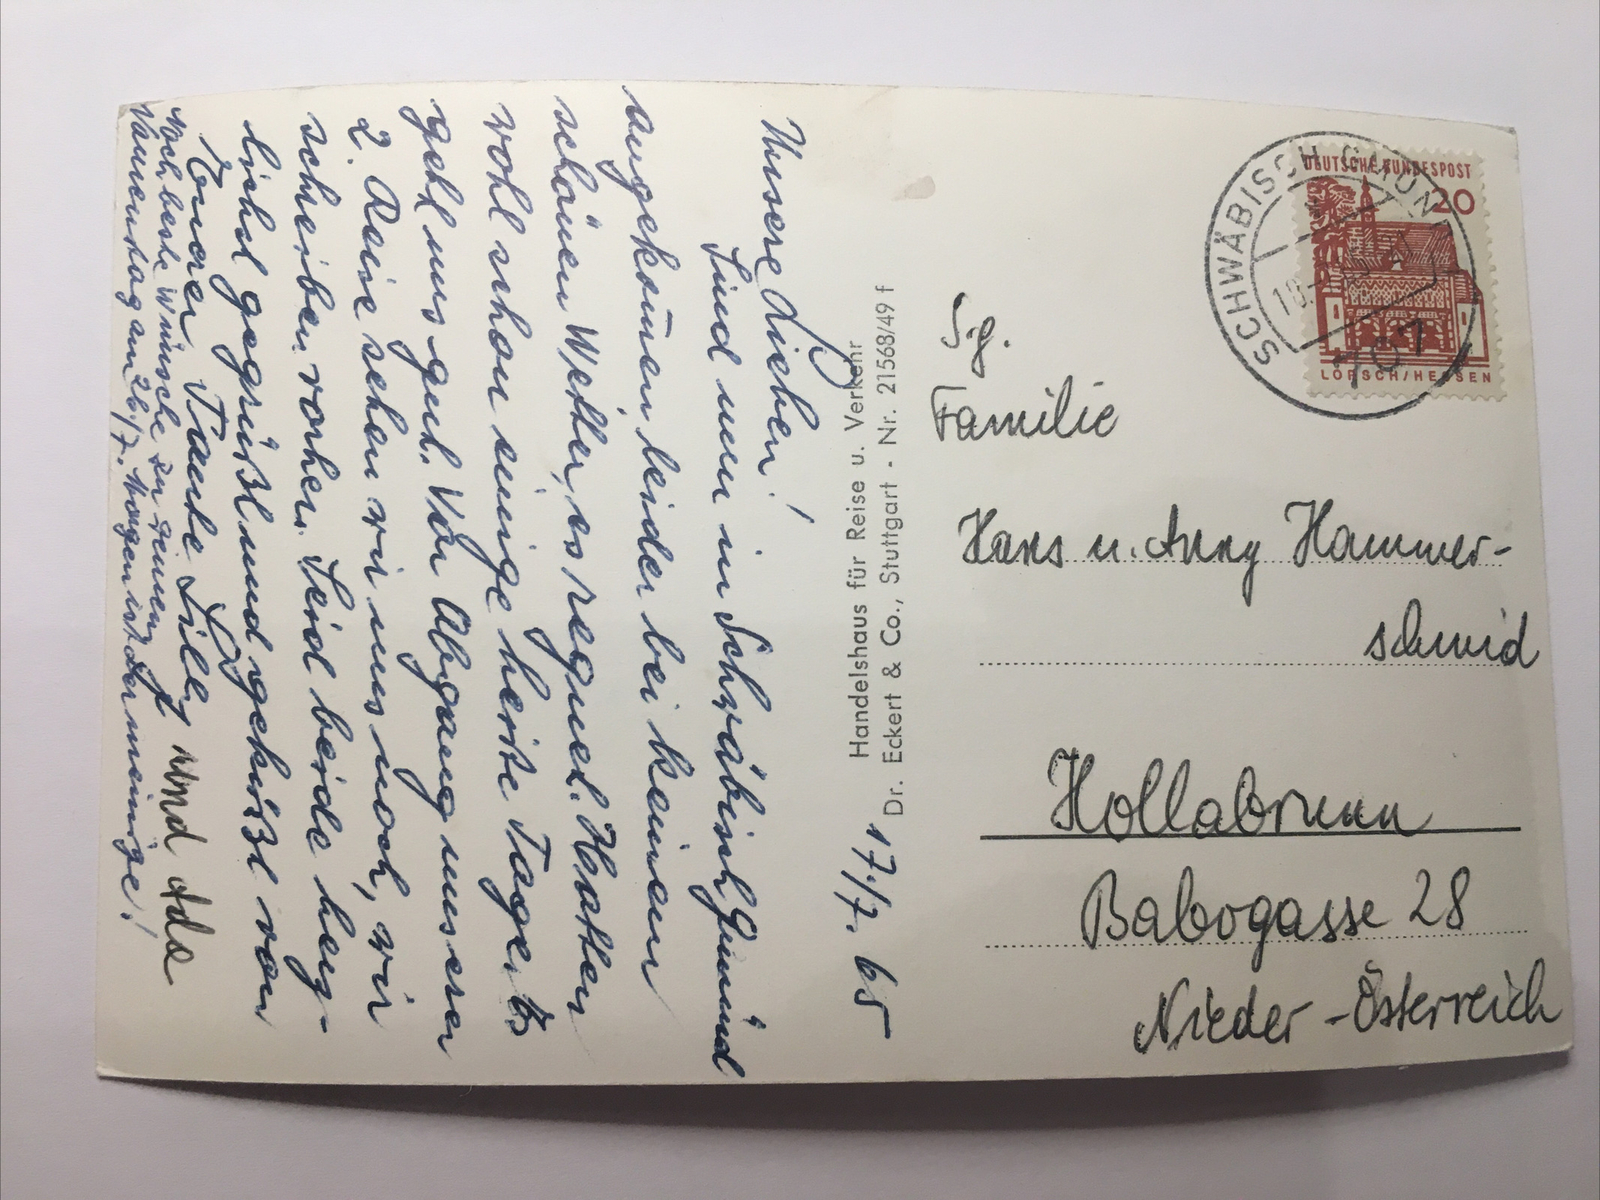 17./7. 65
Unsere Lieben!
Sind nun in Schwäbisch Gmünd
angekom̄en leider bei keinem
schönen Wetter, es regnet. Hatten
wohl schon einige heiße Tage. Es
geht uns gut. Vor Abgang unserer
2. Reise sehen wir uns noch, wir
schreiben vorher. Seid beide herz-
lichst gegrüßt und geküßt von
Eurer Tante Lilly und Ada
Noch beste Wünsche zu Deinem
Namenstag am 26./7. Morgen ist der meinige!
Handelshaus für Reise u. Verkehr
Dr. Eckert & Co., Stuttgart - Nr. 21568/49 f
DEUTSCHE BUNDESPOST
20
LORSCH/HESSEN
SCHWÄBISCH GMÜND
707
Sg.
Familie
Hans u. Anny Hammer-
schmid
Hollabrunn
Babogasse 28
Nieder-Österreich